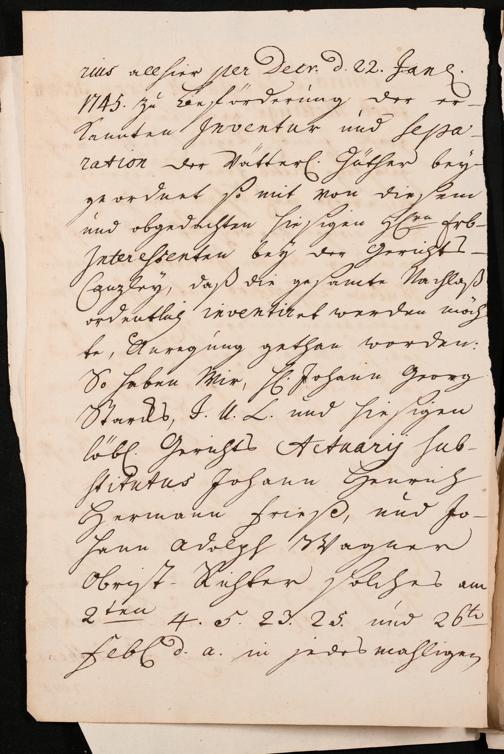 rius allhier per Decr. d. 22. Jan.
1745. zu Beförderung der er-
kannten Inventur und Sepa-
ration der Vätterl. Güther bey-
geordnet so mit von diesem
und obgedachten hiesigen HHrn Erb-
Interessenten bey der Gerichts-
Canzley, daß die gesamte Nachlaß
ordentlich inventiret werden möch
te, Anregung gethan worden:
So haben Wir, H. Johann Georg
Starck, J. U. L. und hiesigen
löbl. Gerichts Actuarij sub-
stitutus Johann Henrich
Hermann Frieß, und Jo-
hann Adolph Wagner
Obrist-Richter solches am
2ten 4. 5. 23. 25. und 26ten
Feb. d. a. in jedesmahligen